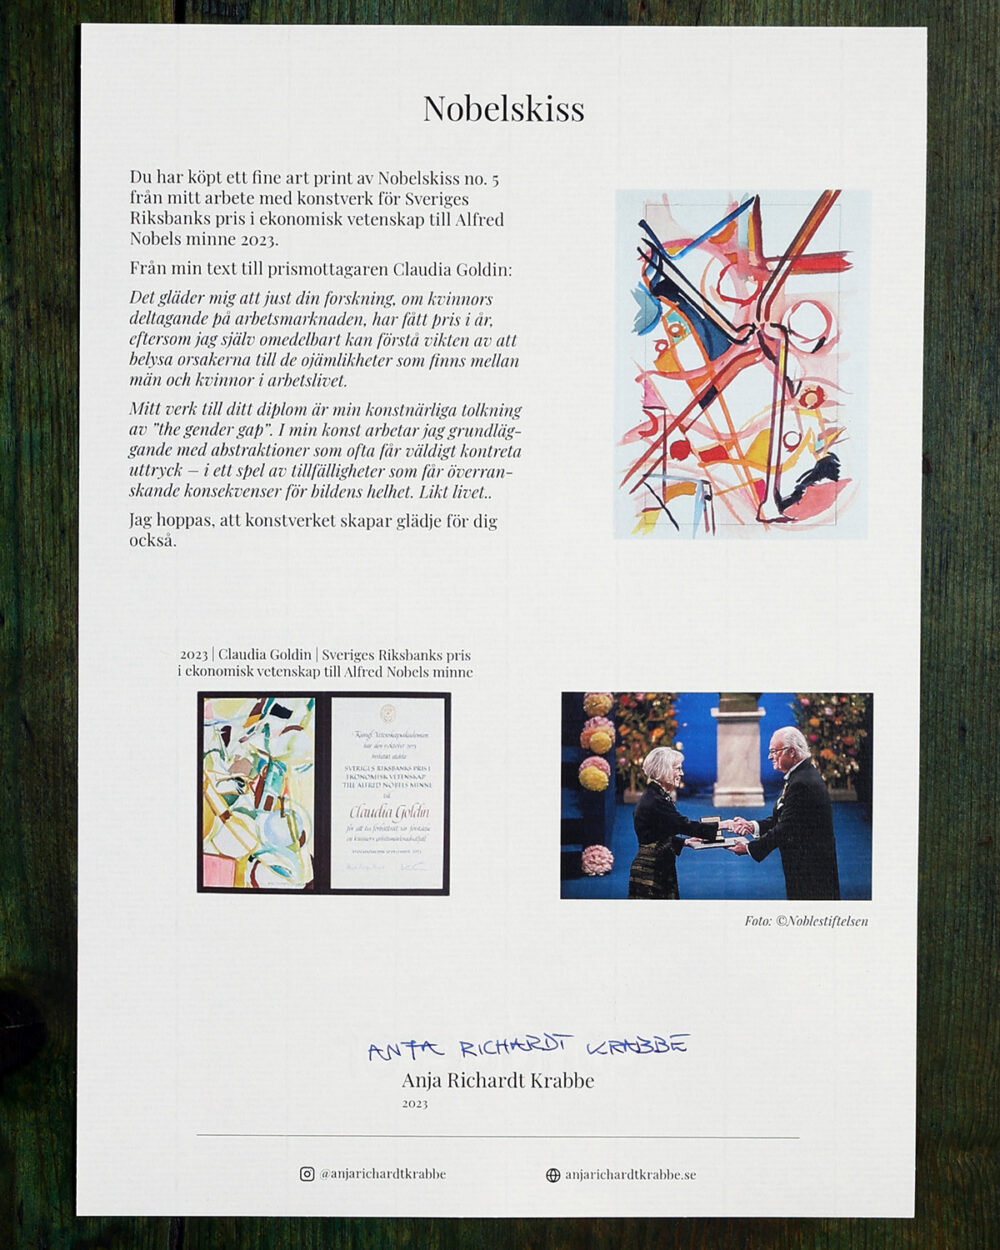 Nobelskiss
Du har köpt ett fine art print av Nobelskiss no. 5
från mitt arbete med konstverk för Sveriges
Riksbanks pris i ekonomisk vetenskap till Alfred
Nobels minne 2023.
Från min text till prismottagaren Claudia Goldin:
Det gläder mig att just din forskning, om kvinnors
deltagande på arbetsmarknaden, har fått pris i år,
eftersom jag själv omedelbart kan förstå vikten av att
belysa orsakerna till de ojämlikheter som finns mellan
män och kvinnor i arbetslivet.
Mitt verk till ditt diplom är min konstnärliga tolkning
av "the gender gap". I min konst arbetar jag grundläg-
gande med abstraktioner som ofta får väldigt kontreta
uttryck – i ett spel av tillfälligheter som får överran-
skande konsekvenser för bildens helhet. Likt livet..
Jag hoppas, att konstverket skapar glädje för dig
också.
2023 | Claudia Goldin | Sveriges Riksbanks pris
i ekonomisk vetenskap till Alfred Nobels minne
Kungl. Vetenskapsakademien
har den 9 oktober 2023
beslutat utdela
SVERIGES RIKSBANKS PRIS I
EKONOMISK VETENSKAP
TILL ALFRED NOBELS MINNE
till
Claudia Goldin
Foto: ©Noblestiftelsen
ANJA RICHARDT KRABBE
Anja Richardt Krabbe
2023
@anjarichardtkrabbe
anjarichardtkrabbe.se